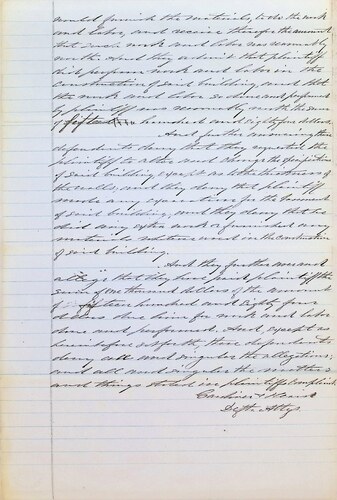 would furnish the materials, to do the work
and labor, and receive therefor the amount
that such work and labor was reasonably
worth. And they admit that plaintiff
did perform work and labor in the
construction of said building, and that
the work and labor so done and performed
by plaintiff was reasonably worth the sum
of fifteen hundred and eighty four dollars.
And further answering these
defendants deny that they requested the
plaintiff to alter and change the specifications
of said building except as to the thickness of
the walls, and they deny that plaintiff
made any excavations for the basement
of said building, and they deny that he
did any extra work or furnished any
materials whatever used in the construction
of said building.
And they further answer and
allege that they have paid plaintiff the
sum of one thousand dollars of the amount
of fifteen hundred and eighty four
dollars due him for work and labor
done and performed. And, except as
hereinbefore set forth, these defendants
deny all and singular the allegations,
and all and singular the matters
and things stated in plaintiffs complaint.
Gardiner &
Defts Attys